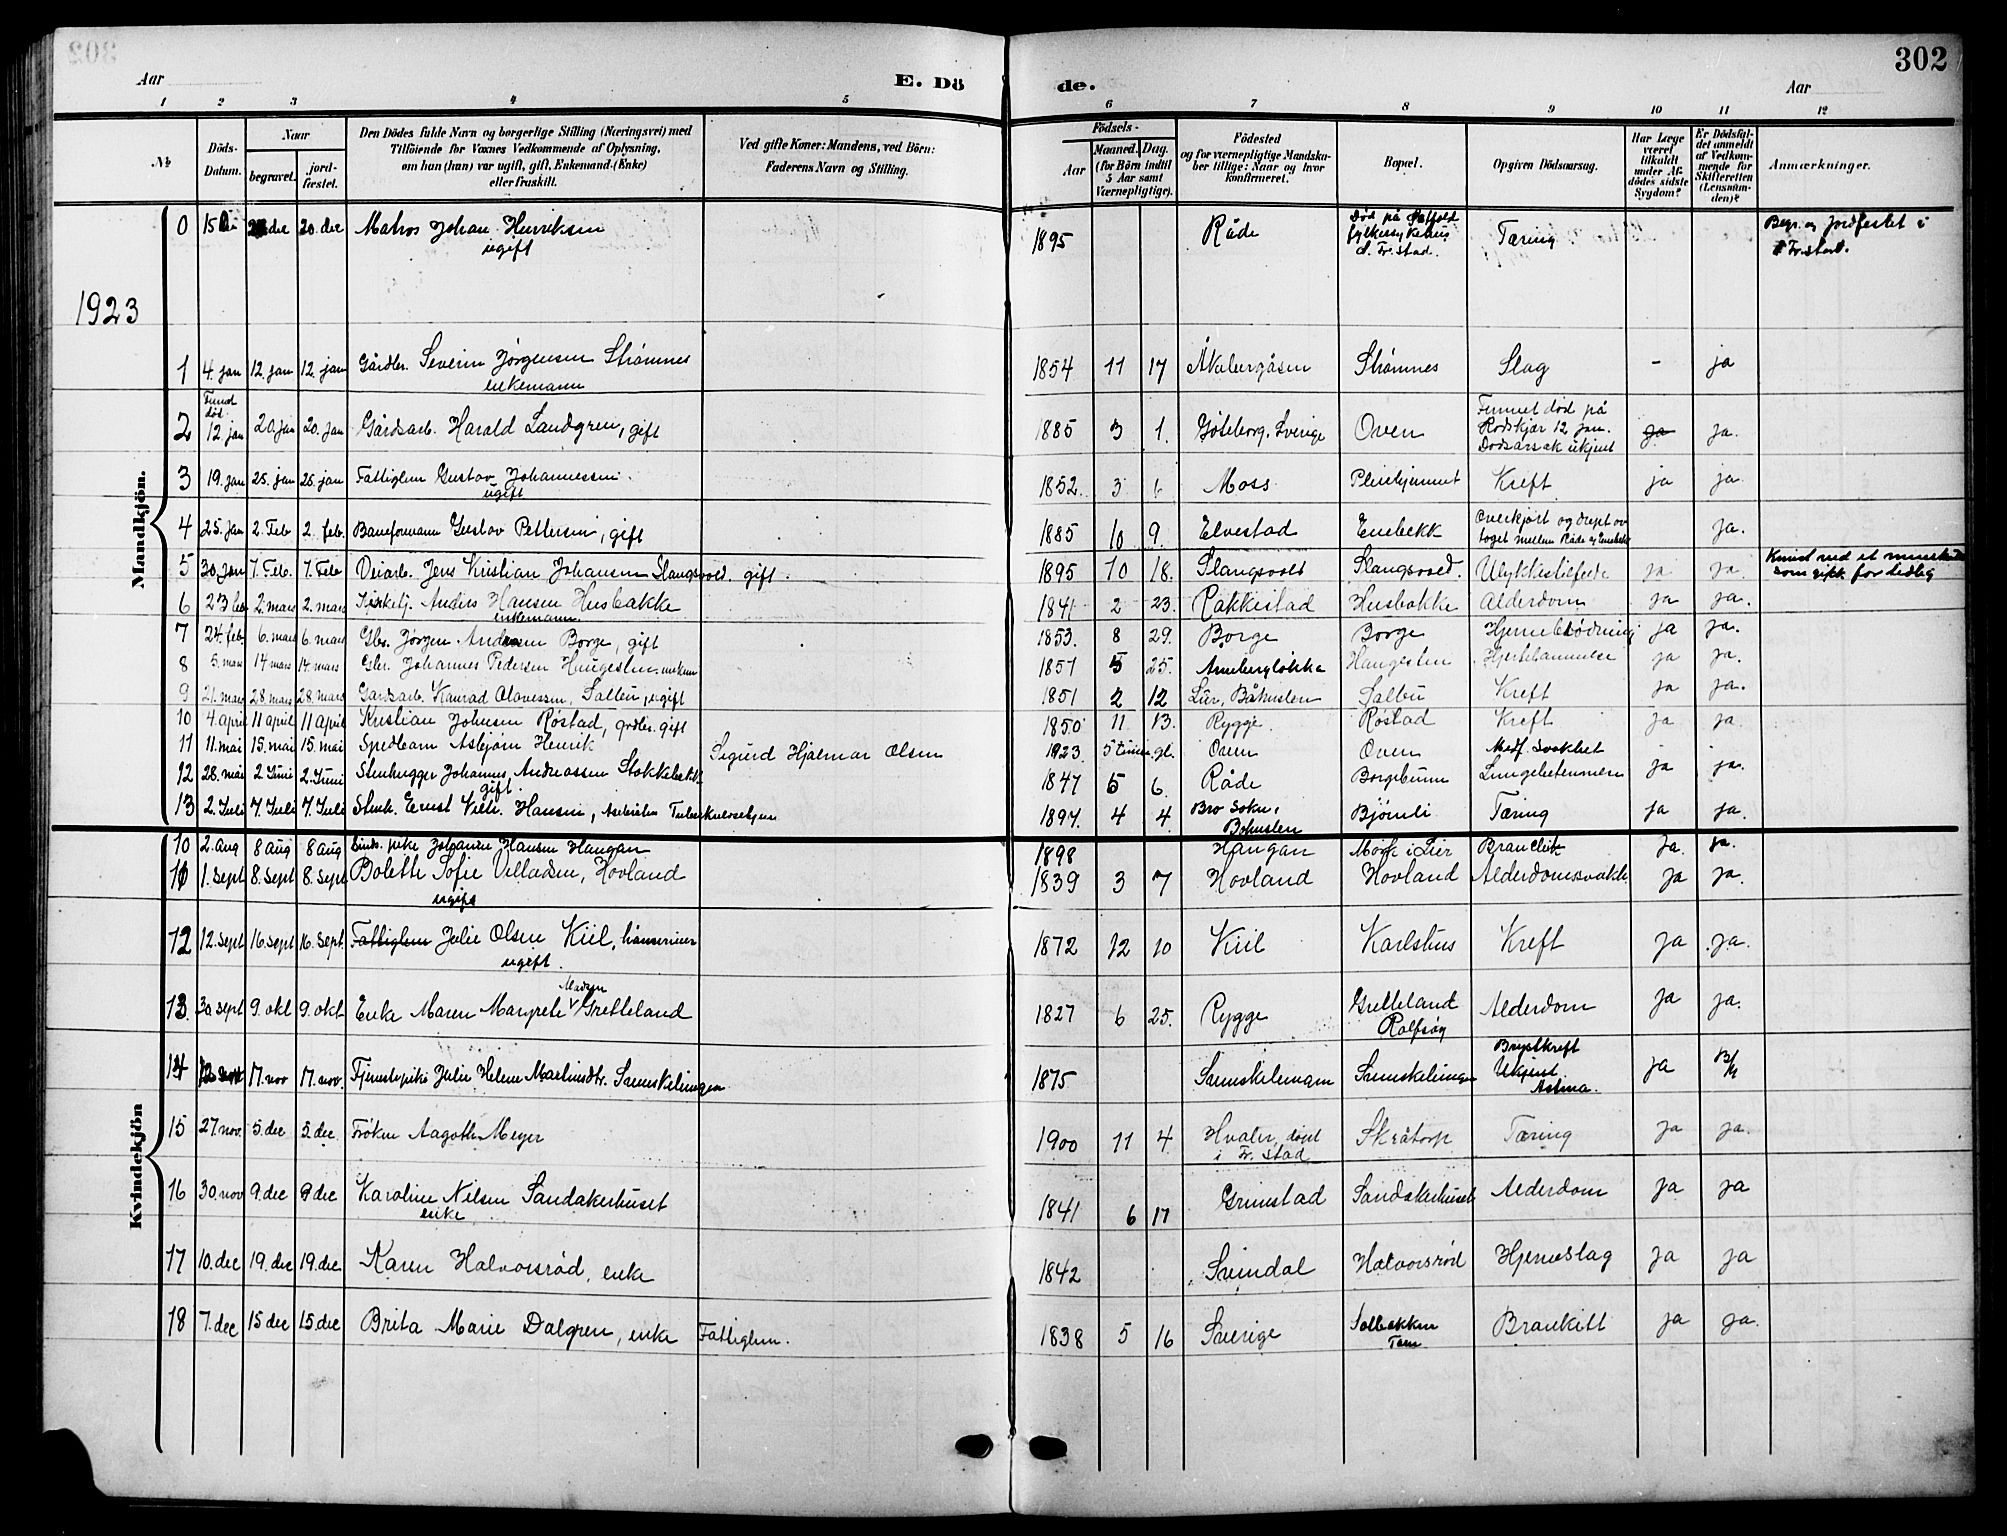 302
Aar
E. Dö
de.
Aar
302
1 2 3 4 5 6 7 8 9 10 11 12
№
Döds-
Datum.
Naar
begravet.
jord-
fæstet.
Den Dödes fulde Navn og borgerlige Stilling (Næringsvei) med
Tilföiende for Voxnes Vedkommende af Oplysning,
om han (hun) var ugift, gift, Enkemand (Enke)
eller fraskilt.
Ved gifte Koner: Mandens, ved Börn:
Faderens Navn og Stilling.
Födsels-
Aar
Maaned. Dag.
(for Börn indtil
5 Aar samt
Værnepligtige).
Födested
og for værnepligtige Mandska-
ber tillige: Naar og hvor
konfirmeret.
Bopæl.
Opgiven Dödsaarsag.
Har Læge
været
tilkaldt
under Af-
dödes sidste
Sygdom?
Er Dödsfal-
det anmeldt
af Vedkom-
mende for
Skifteretten
(Lensman-
den)?
Anmærkninger.
Mandkjön.
0 15 dec 20 dec Matros Johan Henriksen 1895 Råde Død på Tæring Begr. og jordfestet i
ugift fylkessykehus Fr.stad.
Fr.stad.
1923
1 4. jan 12. jan 12. jan Gårdbr. Severin Jørgensen Strømnes 1854 11 17 Strømnes Slag - ja
enkemann
2 Funnet død 12. jan 20. jan 20. jan Gårdsarb. Harald Landgren, gift 1885 3 1. Göteborg, Sverige Oven Funnet død på
Rødskjær 12 jan. ja ja.
Dødsårsak ukjent
3 19. jan 25. jan 25. jan Fattiglem Gustav Johannessen. 1852. 3 Moss Pleiehjemmet Kreft ja ja.
ugift
4 25. jan 2. Feb 2. feb. Baneformann Gustav Pettersen, gift 1885 10 9. Elvestad Enebekk Overkjørt og drept av ja.
toget mellem Råde og Enebekk
5 30. jan 7. Feb. 7. Feb Veiarb. Jens Kristian Johansen Slangsvold. gift. 1895 10 18. Slangsvold Slangsvold. Ulykkestilfede ja ja. Knust ved et mineskudd
som gikk for tidlig
6 23 feb 2. mars 2. mars Kirketj. Anders Hansen Husbakke 1841 2 23. Rakkestad Husbakke Alderdom ja ja.
enkemann
7 24. feb. 6. mars 6. mars Gbr. Jørgen Andersen Borge, gift 1853. 8 29. Borge Borge Hjerneblødning ja ja.
8 5. mars 14 mars 14. mars Gbr. Johannes Pedersen Haugesten. enkem 1857 5 25. Arnebergløkka Haugesten Hjertelammelse ja ja.
9 21. mars 28 mars 28 mars Gårdsarb. Konrad Olavessen, Saltbu, ugift 1851 2 12 Lur, Båhuslen Saltbu Kreft ja ja.
10 4. april 11 april 11 april Kristian Johnsen Røstad, grdbr. gift 1850 11 13. Rygge. Røstad Kreft ja ja.
11 11. mai 15. mai 15. mai Spedbarn Asbjørn Henrik Sigurd Hjalmar Olsen 1923 5 timer gl. Oven Oven Medf. svakhet ja ja.
12 28. mai 2 Juni 2. Juni Stenhugger Johannes Andreassen Stokkebekk 1847 5 6. Råde Borgebunn Lungebetennelse ja ja.
gift.
13 2. Juli 7 Juli 7. Juli Stenh. Ernst Vilh. Hansen, Tuberkulosehjem 1897. 4 4. Bro sokn, Bjørnli Tæring ja ja.
Bohuslen
Kvindekjön
10 2. Aug 8 Aug 8 Aug pike Johanne Hansen Haugan 1898 Haugan Mørk i Lier ja. ja.
11 1. sept 8. sept 8. sept Bolette Sofie Villadsen, Hovland 1839 3 7 Hovland Hovland Alderdomssvakh. ja ja.
ugift
12 12. sept 16. sept 16. sept. Fattiglem Julie Olsen Kiil, 1872 12 10 Kiil Karlshus Kreft ja ja.
ugift.
13. 30 sept 9. okt 9. okt Enke Maren Margrete Madsen Gretteland 1827 6 25. Rygge Gretteland Alderdom ja ja.
Rolfsøy
14 17. nov 17. nov. Tjenestepike Julie Helene Martinsdtr. 1875 Brystkreft
Ukjent ja
Astma.
15 27 nov. 5. dec 5. dec. Frøken Aagothe Meyer 1900 11 4. Hvaler, døpt Skråtorp Tæring ja ja.
i Fr. stad
16 30. nov 9. dec 9 dec Karoline Nilsen Sandakerhuset 1841 6 17 Grimstad Sandakerhuset Alderdom ja ja
enke
17 10. dec 19. dec 19. dec Karen Halvorsrød, enke 1842 Svindal Halvorsrød Hjerneslag ja ja
18 7. dec 15 dec 15. dec Brita Marie Dalgren, enke Fattiglem. 1838 5 16 Sverige Solbakken ja ja.
Tom